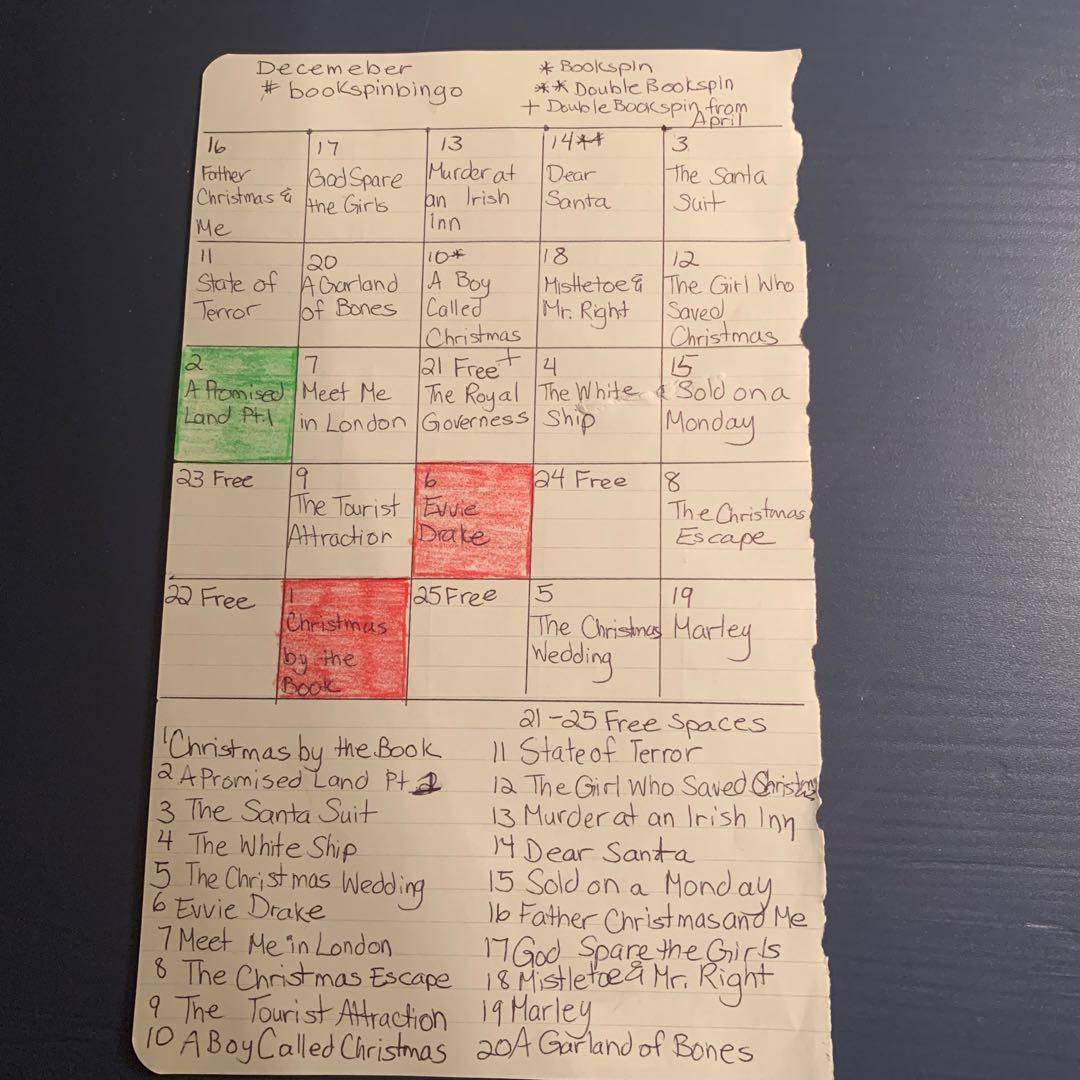 Decemeber
# bookspinbingo
* Bookspin
** Double Bookspin
+ Double Bookspin from
April
16
Father
Christmas &
Me
17
God Spare
the Girls
13
Murder at
an Irish
Inn
14**
Dear
Santa
3
The Santa
Suit
11
State of
Terror
20
A Garland
of Bones
10*
A Boy
Called
Christmas
18
Mistletoe &
Mr. Right
12
The Girl Who
Saved
Christmas
2
A Promised
Land Pt.1
7
Meet Me
in London
21 Free+
The Royal
Governess
4
The White
Ship
15
Sold on a
Monday
23 Free
9
The Tourist
Attraction
6
Evvie
Drake
24 Free
8
The Christmas
Escape
22 Free
1
Christmas
by the
Book
25 Free
5
The Christmas
Wedding
19
Marley
21-25 Free Spaces
1 Christmas by the Book
2 A Promised Land Pt.
3 The Santa Suit
4 The White Ship
5 The Christmas Wedding
6 Evvie Drake
7 Meet Me in London
8 The Christmas Escape
9 The Tourist Attraction
10 A Boy Called Christmas
11 State of Terror
12 The Girl Who Saved Christmas
13 Murder at an Irish Inn
14 Dear Santa
15 Sold on a Monday
16 Father Christmas and Me
17 God Spare the Girls
18 Mistletoe & Mr. Right
19 Marley
20 A Garland of Bones